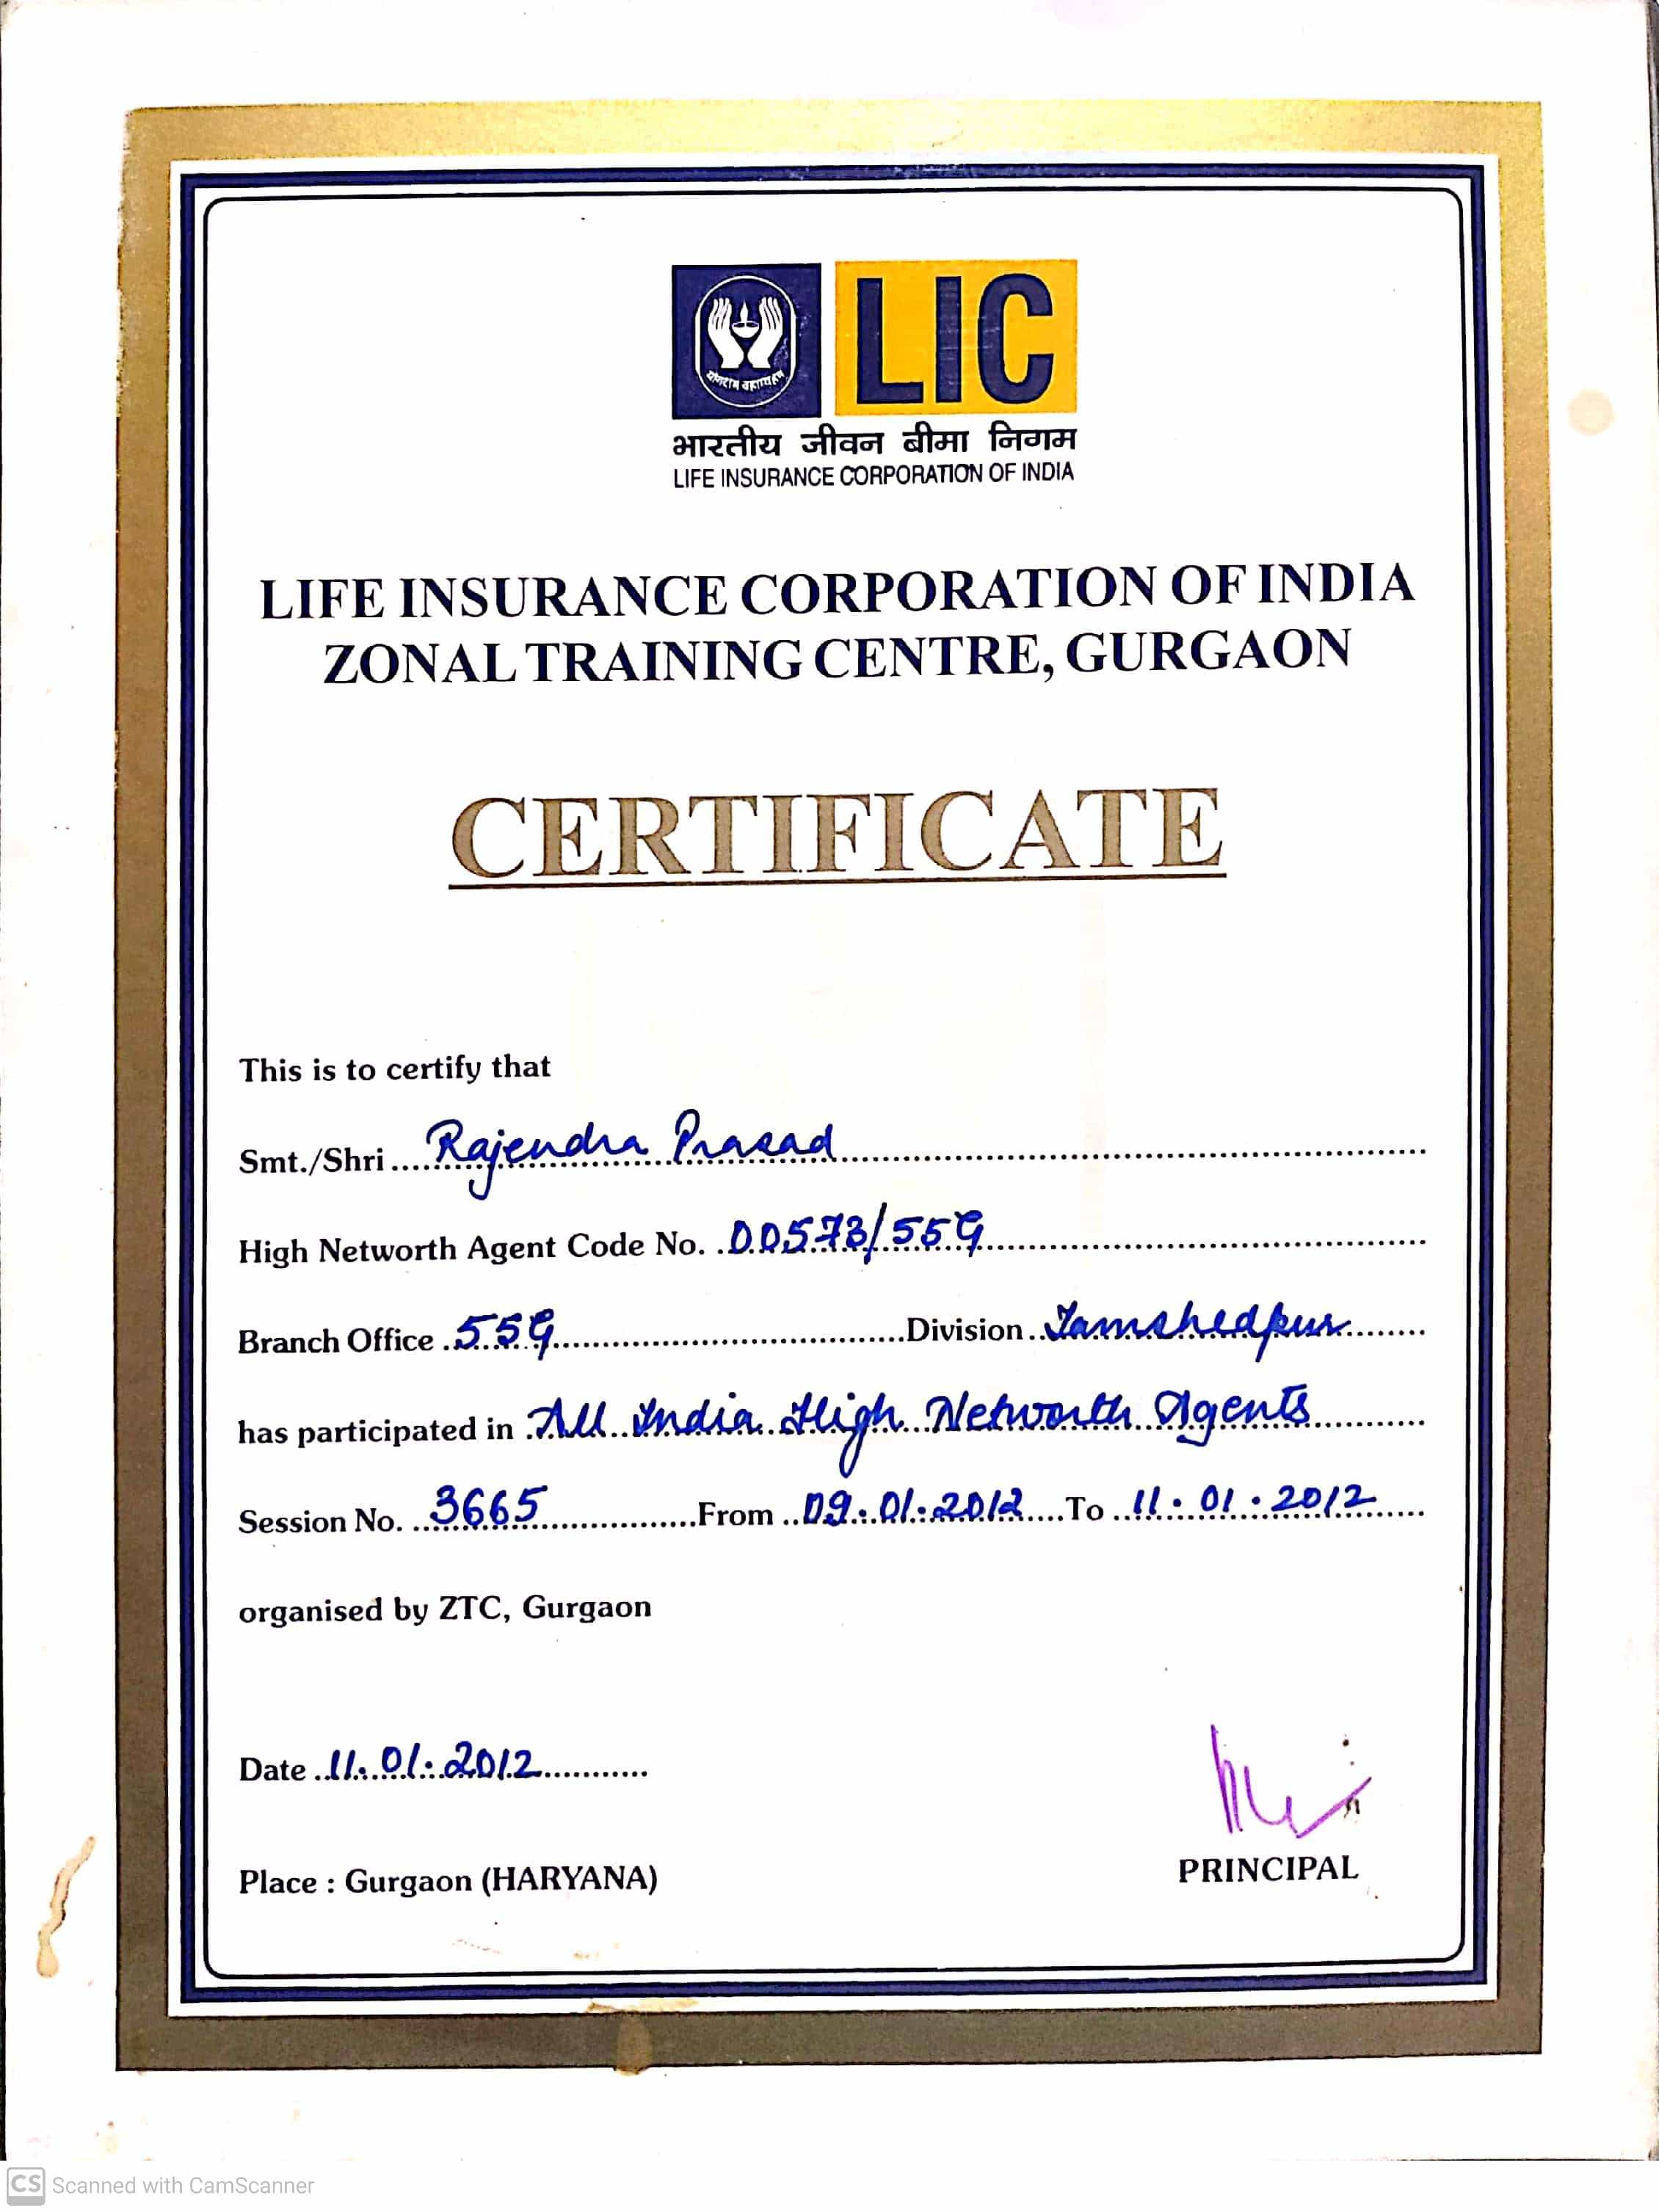 योगक्षेमं वहाम्यहम्
LIC
भारतीय जीवन बीमा निगम
LIFE INSURANCE CORPORATION OF INDIA
LIFE INSURANCE CORPORATION OF INDIA
ZONAL TRAINING CENTRE, GURGAON
CERTIFICATE
This is to certify that
Smt./Shri Rajendra Prasad
High Networth Agent Code No. 00573/55G
Branch Office 55G Division Jamshedpur
has participated in All India High Networth Agents
Session No. 3665 From 09.01.2012 To 11.01.2012
organised by ZTC, Gurgaon
Date 11.01.2012
Place : Gurgaon (HARYANA)
PRINCIPAL
CS Scanned with CamScanner